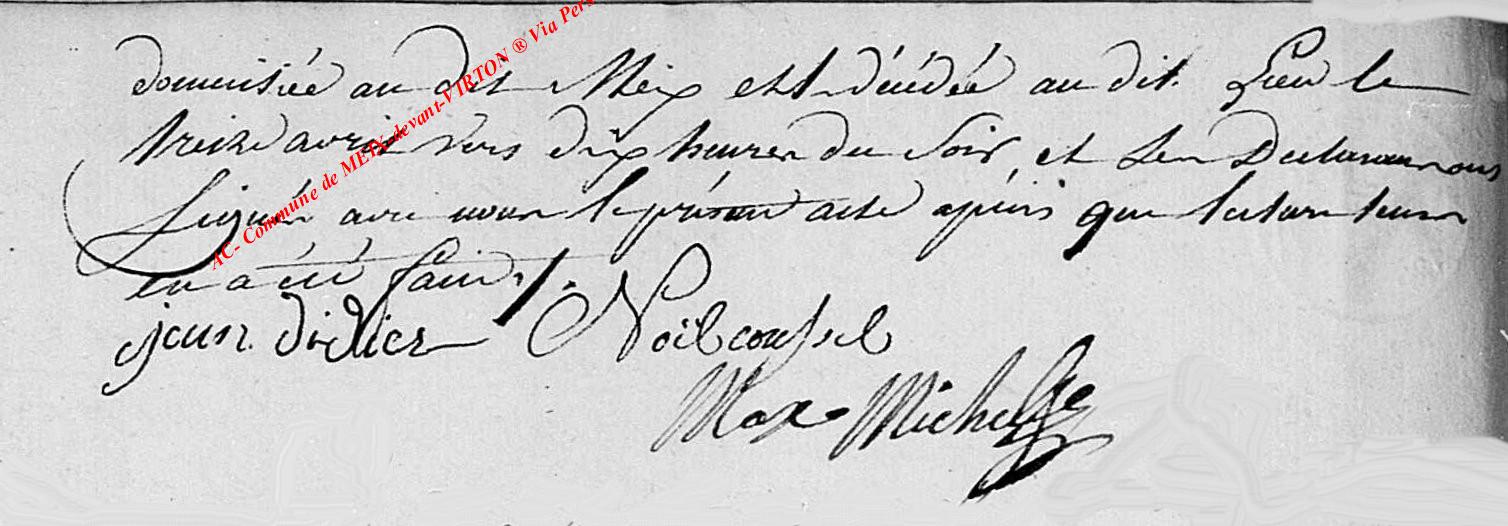 domiciliée au dit Meix est décédée au dit Lieu le
treize avril vers dix heures du Soir, et les Declarans ont
signés avec nous le présent acte après que lecture leurs
en a été faite ./.
jean didier Noël
Max Michel
AC- Commune de MEIX-devant-VIRTON ® Via Pers